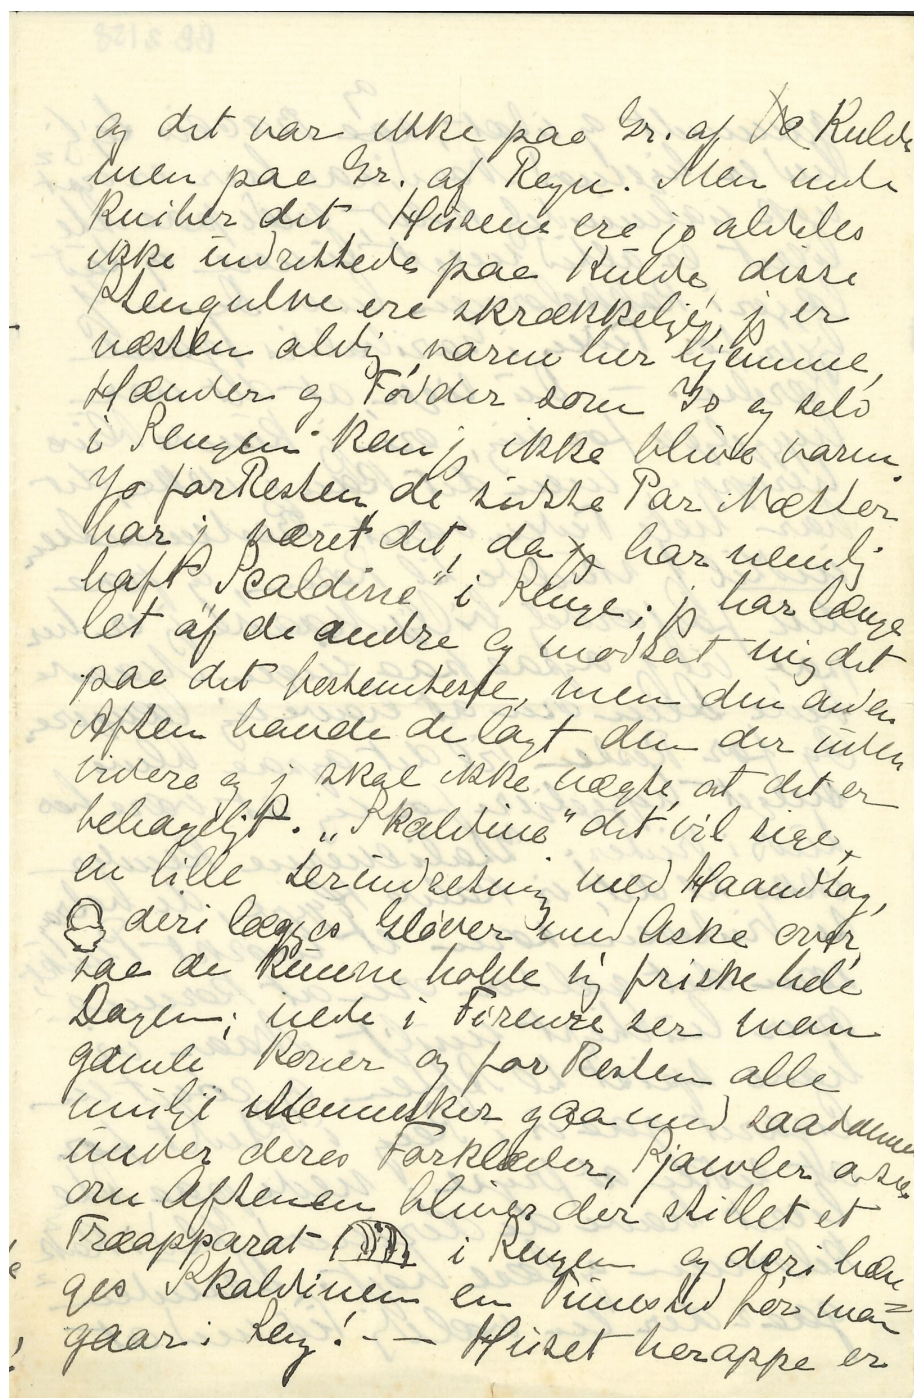 og det var ikke paa Gr. af Kulde
men paa Gr. af Regn. Men inde
kniber det, Husene ere jo aldeles
ikke indrettede paa Kulde, disse
Stengulve ere skrækkelige, jg er
næsten aldrig varm her hjemme,
Hænder og Fødder som Is og selv
i Sengen kan jg ikke blive varm
Jo forResten, de sidste Par Nætter
har jg været det, da jg har nemlig
haft "Scaldine" i Senge; jg har længe
let af de andre og modsat mig det
paa det bestemteste, men den anden
Aften havde de lagt den der uden
videre og jg skal ikke nægte, at det er
behageligt. "Skaldine" det vil sige,
en lille Lerindretning med Haandtag,
deri lægges Gløder med Aske over,
saa de kunne holde sig friske hele
Dagen; nede i Firenze ser man
gamle Koner og for Resten alle
mulige Mennesker gaa med saadanne
under deres Forklæder, Kjavler o.s.v.
om Aftenen bliver der stillet et
Træapparat i Sengen og deri hæn
ges Skaldinen en Timestid før man
gaar i Seng! — — Huset heroppe er